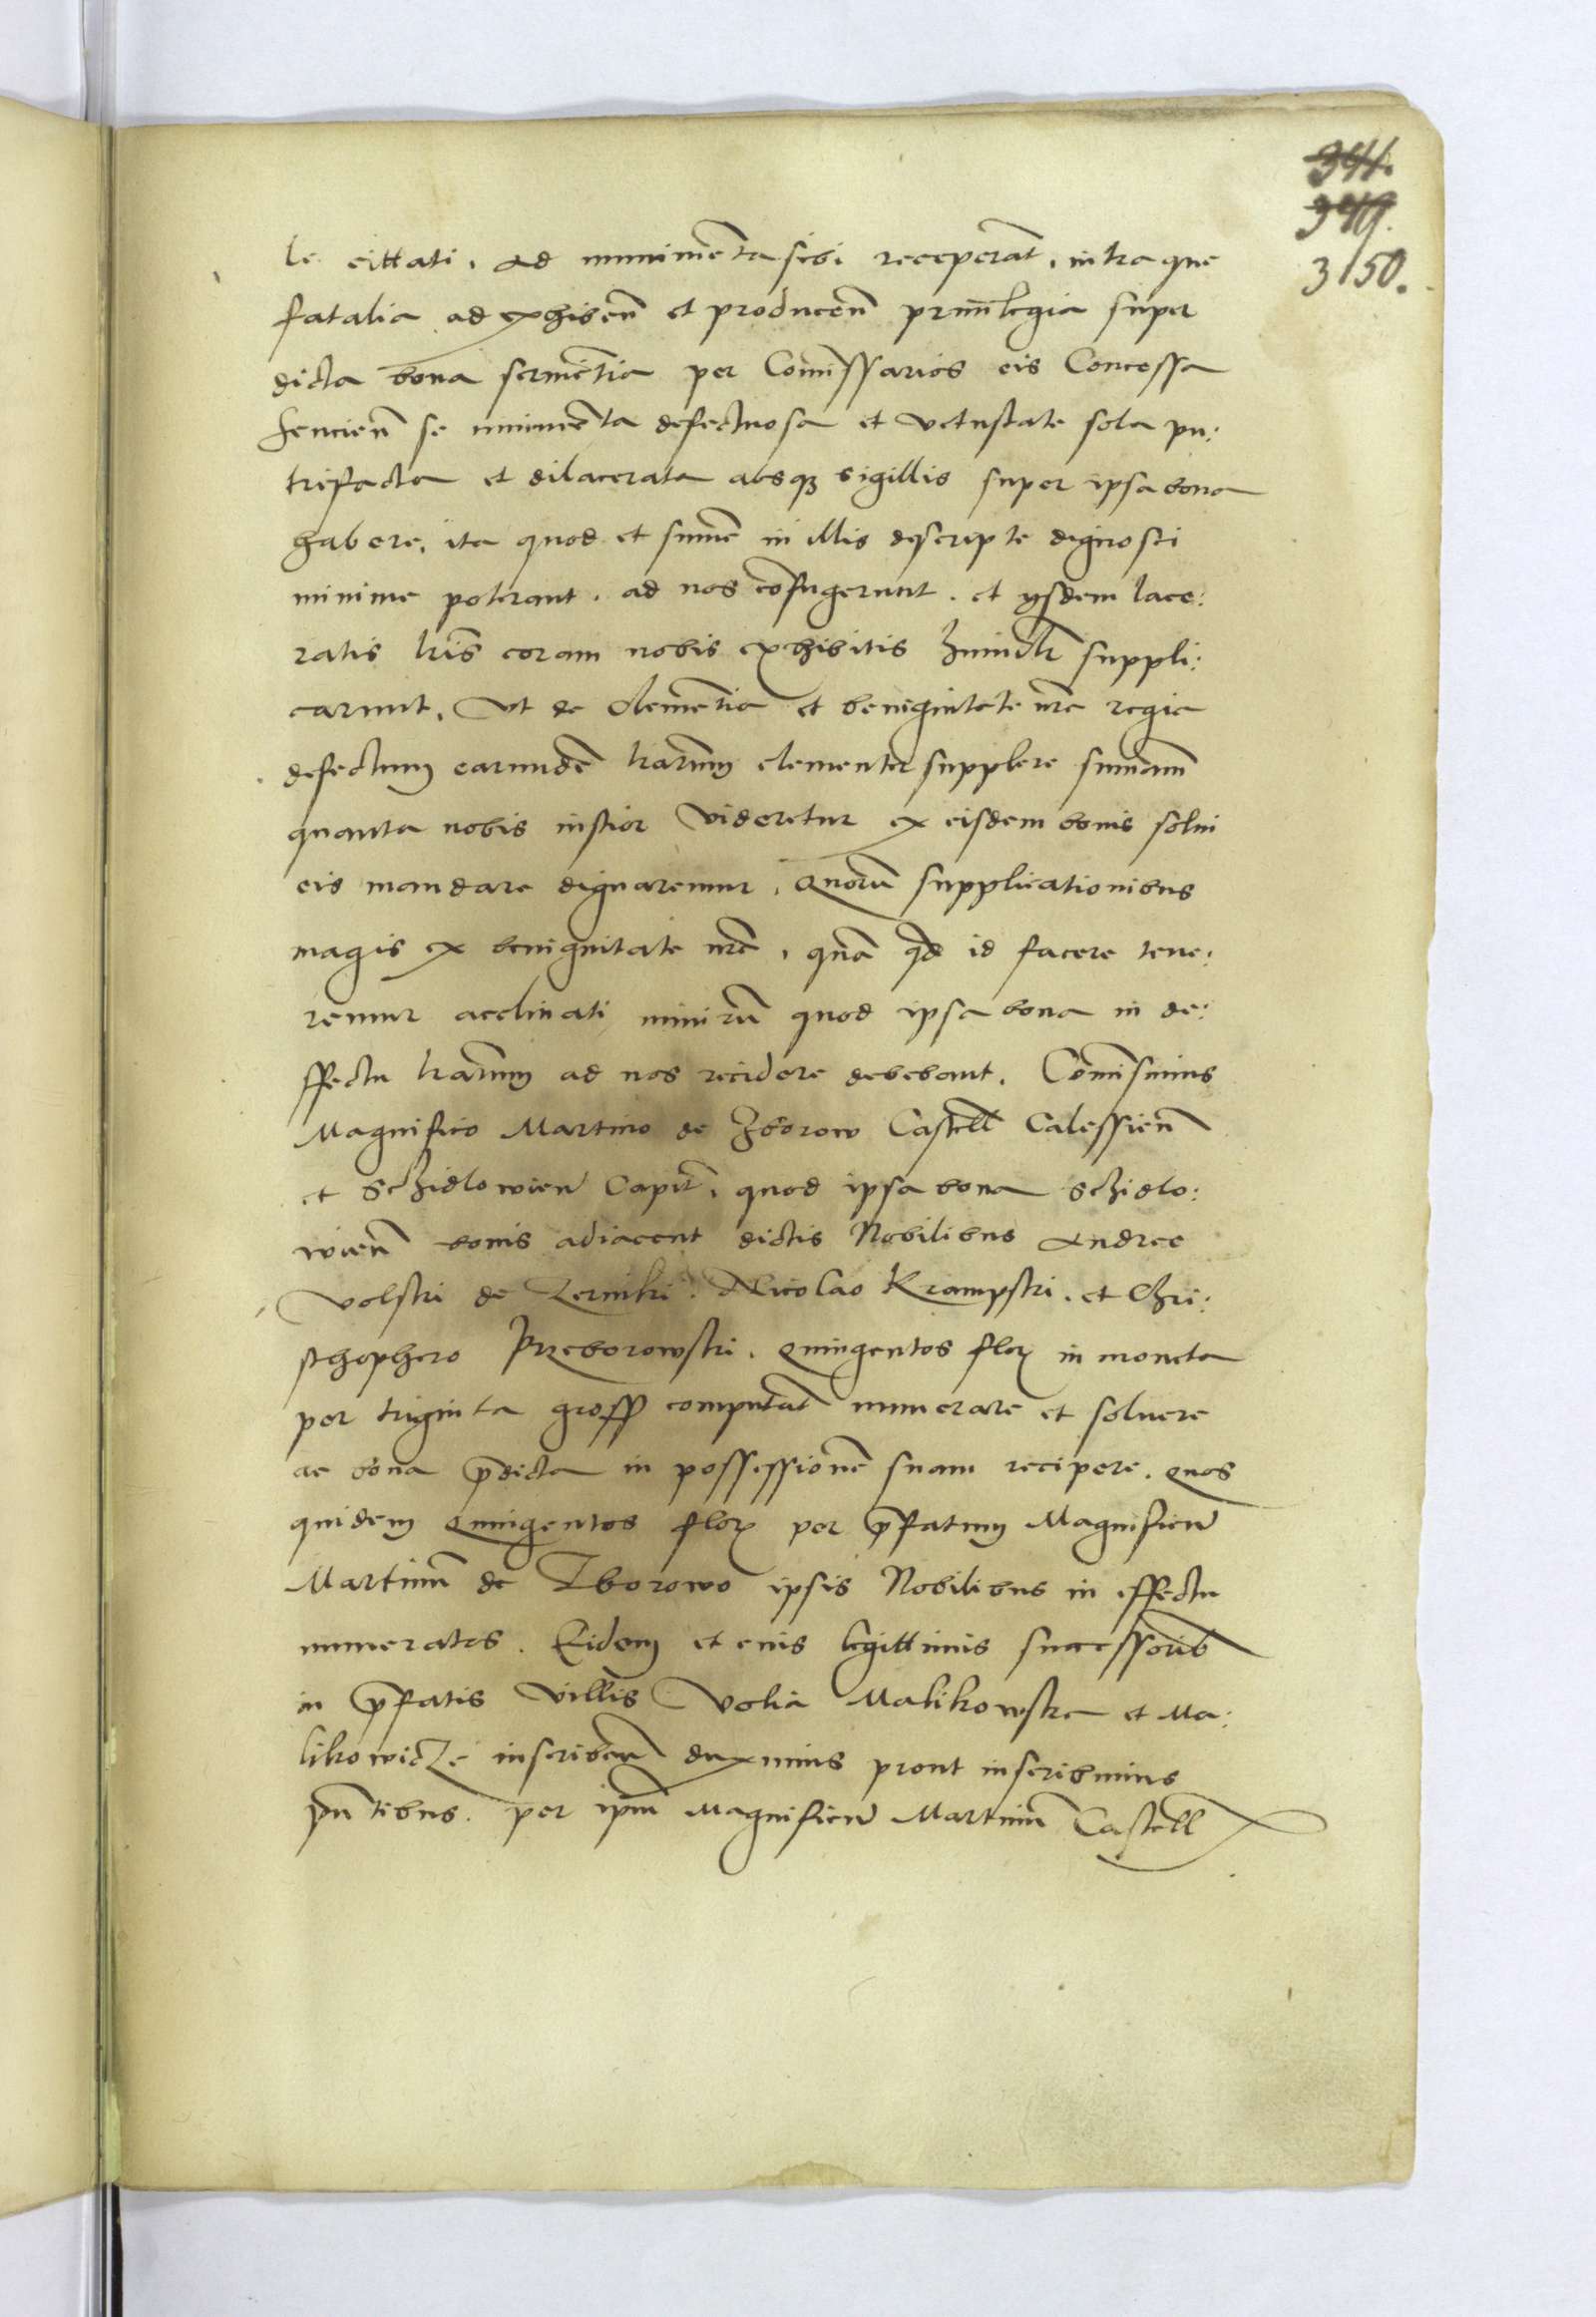 344.
349.
350.
le cittati. Ad munimenta sibi receperāt. intra que
fatalia ad exhibeñ et produceñ priuilegia super
dicta bona fermētia per Comissarios eis Concessa
scencieñ se munimēta defectuosa et vetustate sola pu:
trefacta et dilacerata absqȝ sigillis super ipsa bona
habere, ita quod et sume in illis descripte dignosci
minime poterant. ad nos cōfugerunt. et ysdem lace:
ratis lr̄is coram nobis exhibitis humilr̄ suppli:
carunt. Vt de clemētia et benignitate nr̄a regia
defectum earundē lr̄arum clementer supplere sumam̄
quanta nobis iustior videretur ex eisdem bonis solui
eis mandare dignaremur. Quorū supplicationibus
magis ex benignitate nr̄a, quā qd̄ id facere tene:
remur acclinati nimirū quod ipsa bona in de:
ffectu lr̄arum ad nos recidere debebant. Comisimus
Magnifico Martino de Zborow Castell Calessieñ
et Schidlowieñ Capit̄. quod ipsa bona Schidlo:
wieñ bonis adiacent dictis Nobilibus Andree
Volski de Zerniki. Nicolao Krampski. et Chri:
stophero Przeborowski. Quingentos flor in moneta
per triginta gross computat̄ numerare et soluere
ac bona p̄dicta in possessionē suam recipere. Quos
quidem Quingentos flor per p̄fatum Magnificū
Martinū de Zborowo ipsis Nobilibus in effectu
numeratos. Eidem et eius legittimis successorib
in p̄fatis villis Volia Malikowska et Ma:
likowicze inscribeñ duximus prout inscribimus
pn̄tibus. per ipm̄ Magnificū Martinū Castell